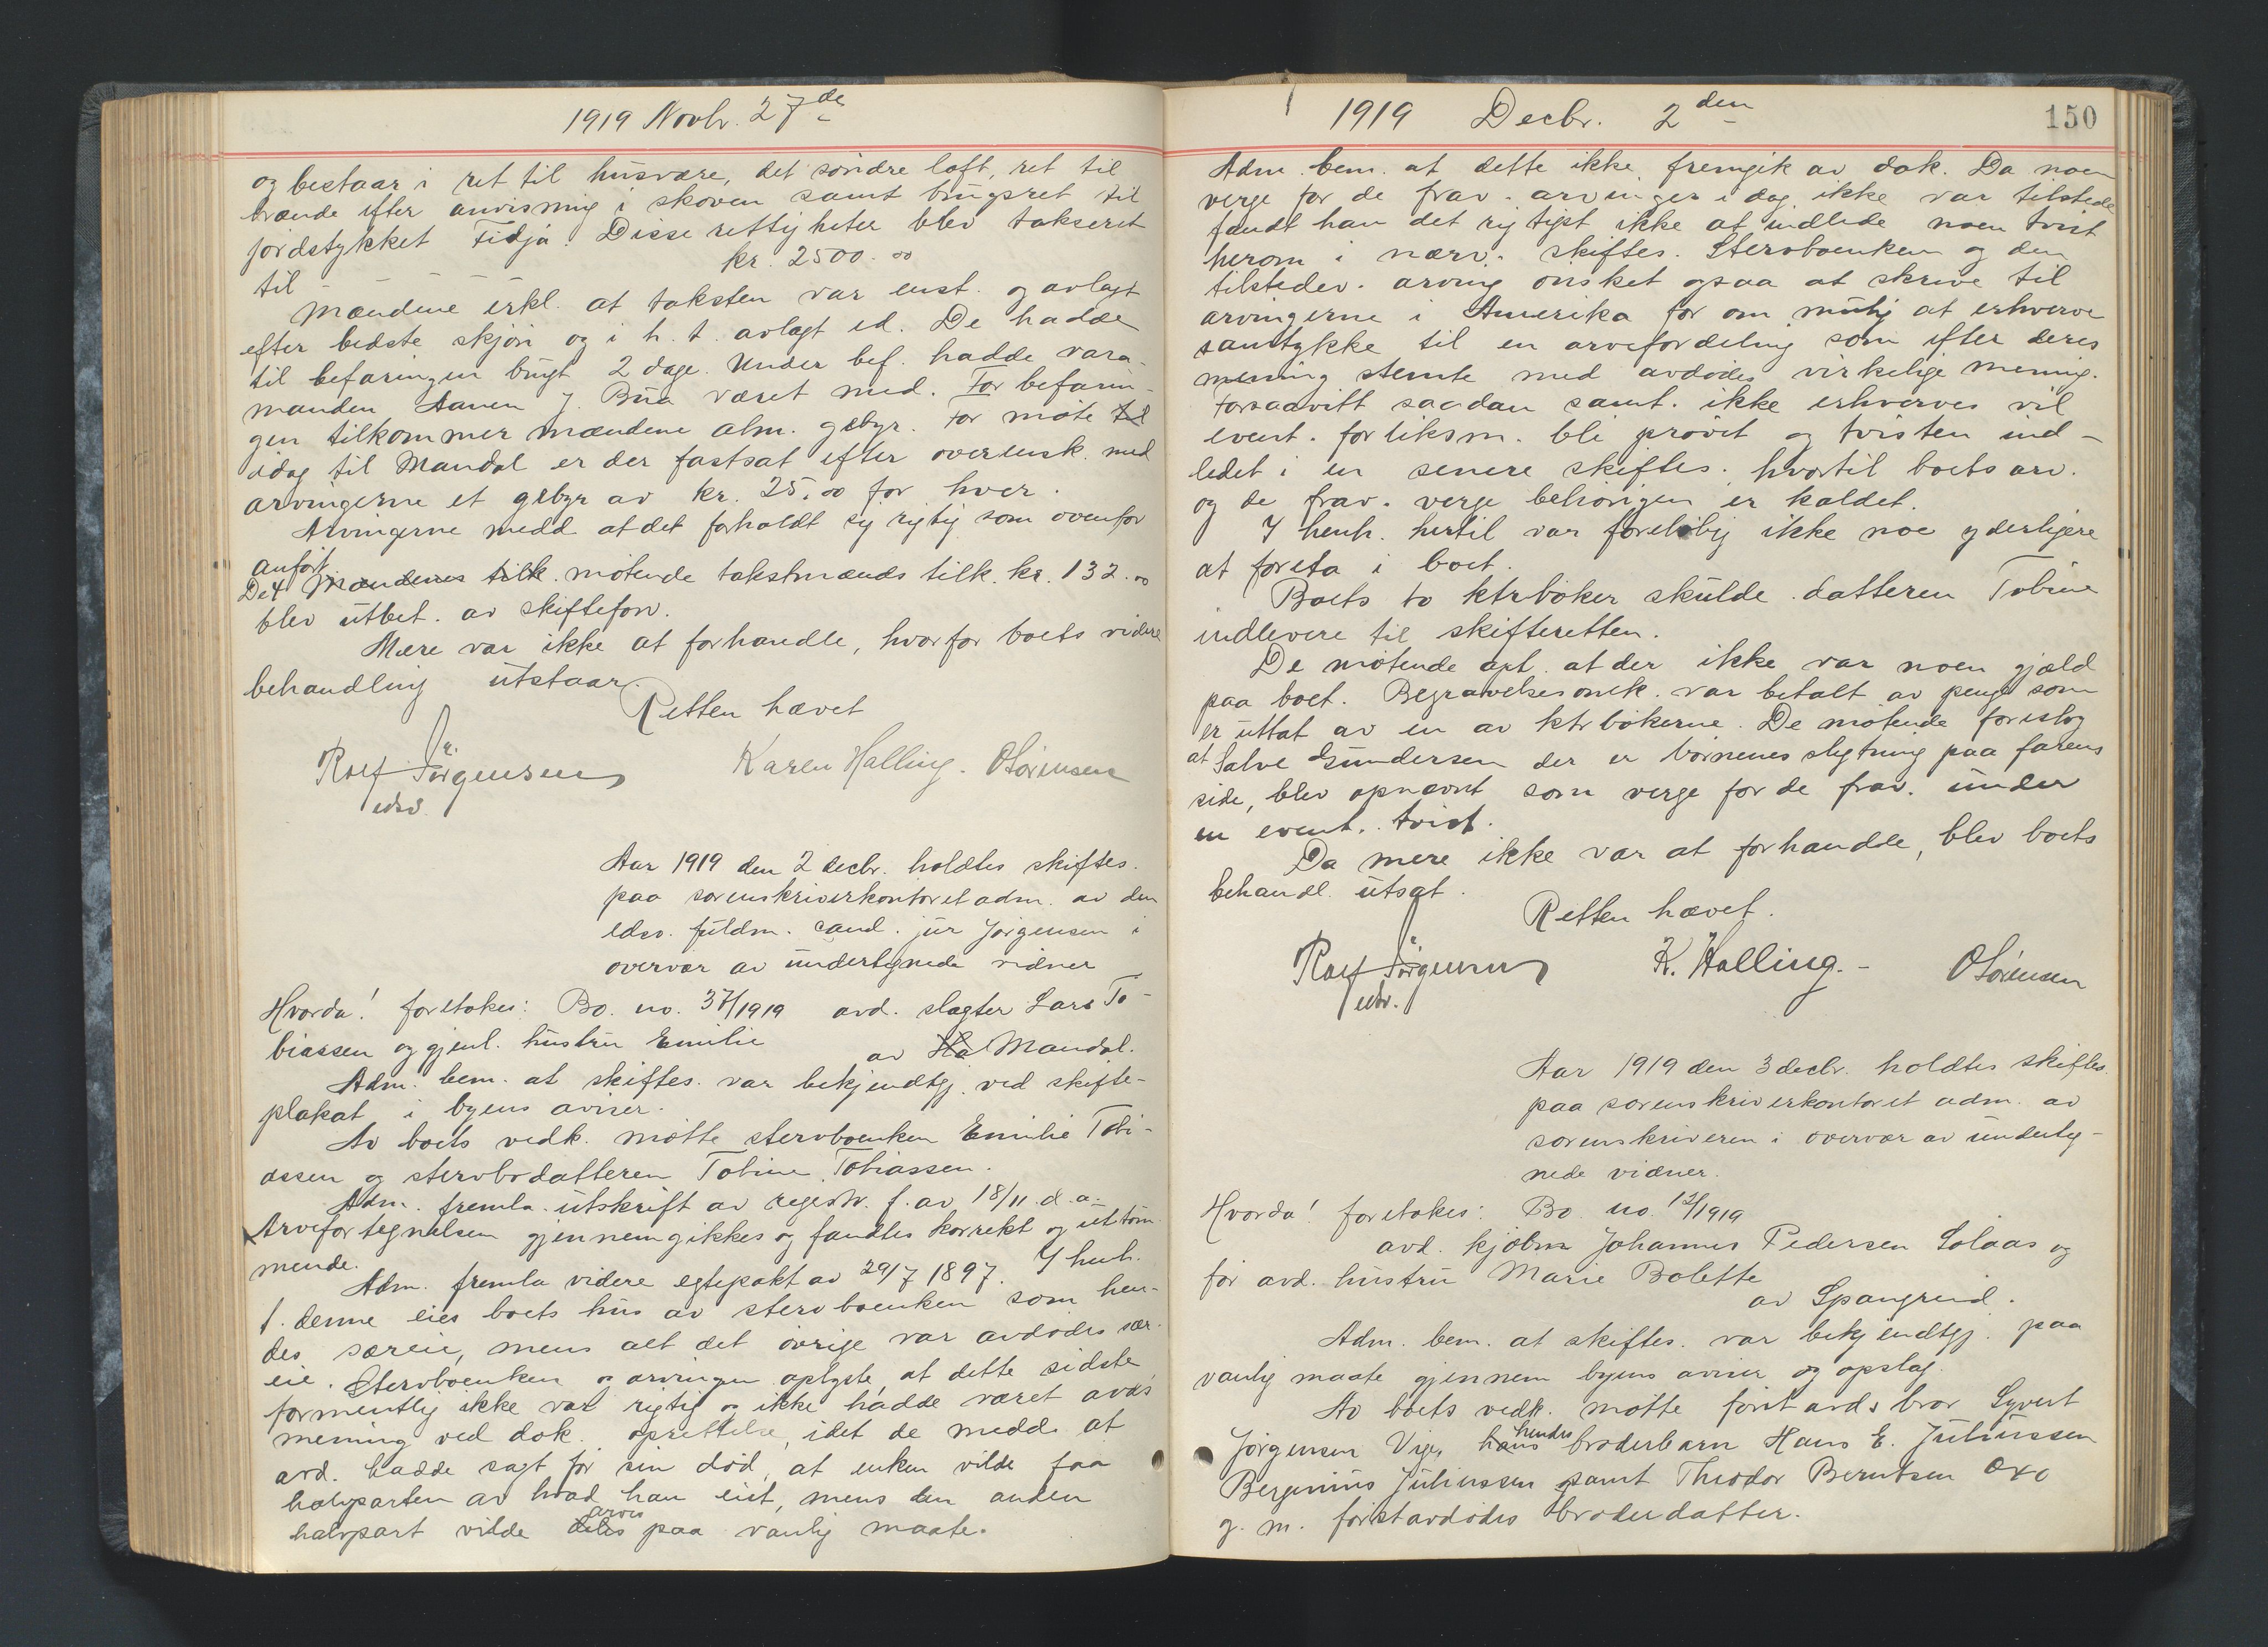 1919 Novbr. 27de
og bestaar i ret til husvære, det søndre loft, ret til
brænde efter anvisning i skoven samt brugsret til
jordstykket Fidjá. Disse rettigheter blev takseret
til kr. 2500.00
Mændene erkl. at taksten var enst. og avlagt
efter bedste skjøn og i h. t. avlagt ed. De hadde
til befaringen brugt 2 dage. Under bef. hadde vara-
manden Aanen J. Bua været med. For befarin-
gen tilkommer mændene alm. gebyr. For møte til
idag til Mandal er der fastsat efter overensk. med
arvingerne et gebyr av kr. 25.00 for hver.
Arvingerne medd. at det forholdt sig rigtig som ovenfor
anført.
Det Mændenes tilk. møtende takstmænds tilk. kr. 132.00
blev utbet. av skifteforv.
Mere var ikke at forhandle, hvorfor boets videre
behandling utstaar.
Retten hævet
Rolf Jørgensen Karen Halling. OSørensen
edsv.
Aar 1919 den 2 decbr. holdtes skiftes.
paa sorenskriverkontoret adm. av den
edsv. fuldm. cand. jur Jørgensen i
overvær av undertegnede vidner
Hvorda! foretokes: Bo. no. 37/1919 avd. slagter Lars To-
biassen og gjenl. hustru Emilie
av Ha Mandal.
Adm. bem. at skiftes. var bekjendtgj. ved skifte-
plakat i byens aviser.
Av boets vedk. møtte stervboenken Emilie Tobi-
assen og stervbodatteren Tobine Tobiassen.
Adm. fremla utskrift av registr. f. av 18/11 d.a.
Arvefortegnelsen gjennemgikkes og fandtes korrekt og uttøm-
mende.
Adm. fremla videre egtepakt av 29/7 1897. I henh.
t. denne eies boets hus av stervboenken som hen-
des særeie, mens alt det øvrige var avdødes sær-
eie. Stervboenken og arvingen oplyste, at dette sidste
formentlig ikke var rigtig og ikke hadde været avds
mening ved dok. oprettelse, idet de medd. at
avd. hadde sagt før sin død, at enken vilde faa
halvparten av hvad han eiet, mens den anden
halvpart vilde deles arves paa vanlig maate.
1919 Decbr. 2den
150
Adm. bem. at dette ikke fremgik av dok. Da noen
verge for de frav. arvinger idag ikke var tilstede
fandt han det rigtigst ikke at indlede noen tvist
herom i nærv. skiftes. Stervboenken og den
tilstedev. arving ønsket ogsaa at skrive til
arvingerne i Amerika for om mulig at erhverve
samtykke til en arvefordeling som efter deres
mening stemte med avdødes virkelige mening.
Forsaavitt saadan samt. ikke erhverves vil
event. forliksm. bli prøvet og tvisten ind-
ledet i en senere skiftes. hvortil boets arv.
og de frav. verge behørigen er kaldet.
I henh. hertil var foreløbig ikke noe yderligere
at foreta i boet.
Boets to ktrbøker skulde datteren Tobine
indlevere til skifteretten.
De møtende opl. at der ikke var noen gjæld
paa boet. Begravelsesomk. var betalt av penge som
er uttat av en av ktrbøkerne. De møtende foreslog
at Salve Gundersen der er børnenes slegtning paa farens
side, blev opnævnt som verge for de frav. under
en event. tvist.
Da mere ikke var at forhandle, blev boets
behandl. utsat.
Retten hævet.
Rolf Jørgensen K. Halling.- OSørensen
edsv.
Aar 1919 den 3 decbr. holdtes skiftes.
paa sorenskriverkontoret adm. av
sorenskriveren i overvær av underteg-
nede vidner.
Hvorda! foretokes: Bo. no. 12/1919
avd. kjøbm Johannes Pedersen Solaas og
før avd. hustru Marie Bolette
av Spangreid.
Adm. bem. at skiftes. var bekjendtgj. paa
vanlig maate gjennem byens aviser og opslag.
Av boets vedk. møtte førstavds bror Syvert
Jørgensen Vige, hans hendes broderbarn Hans E. Juliussen
Berginius Juliussen samt Theodor Berntsen Oxo
g. m. førstavdødes broderdatter.